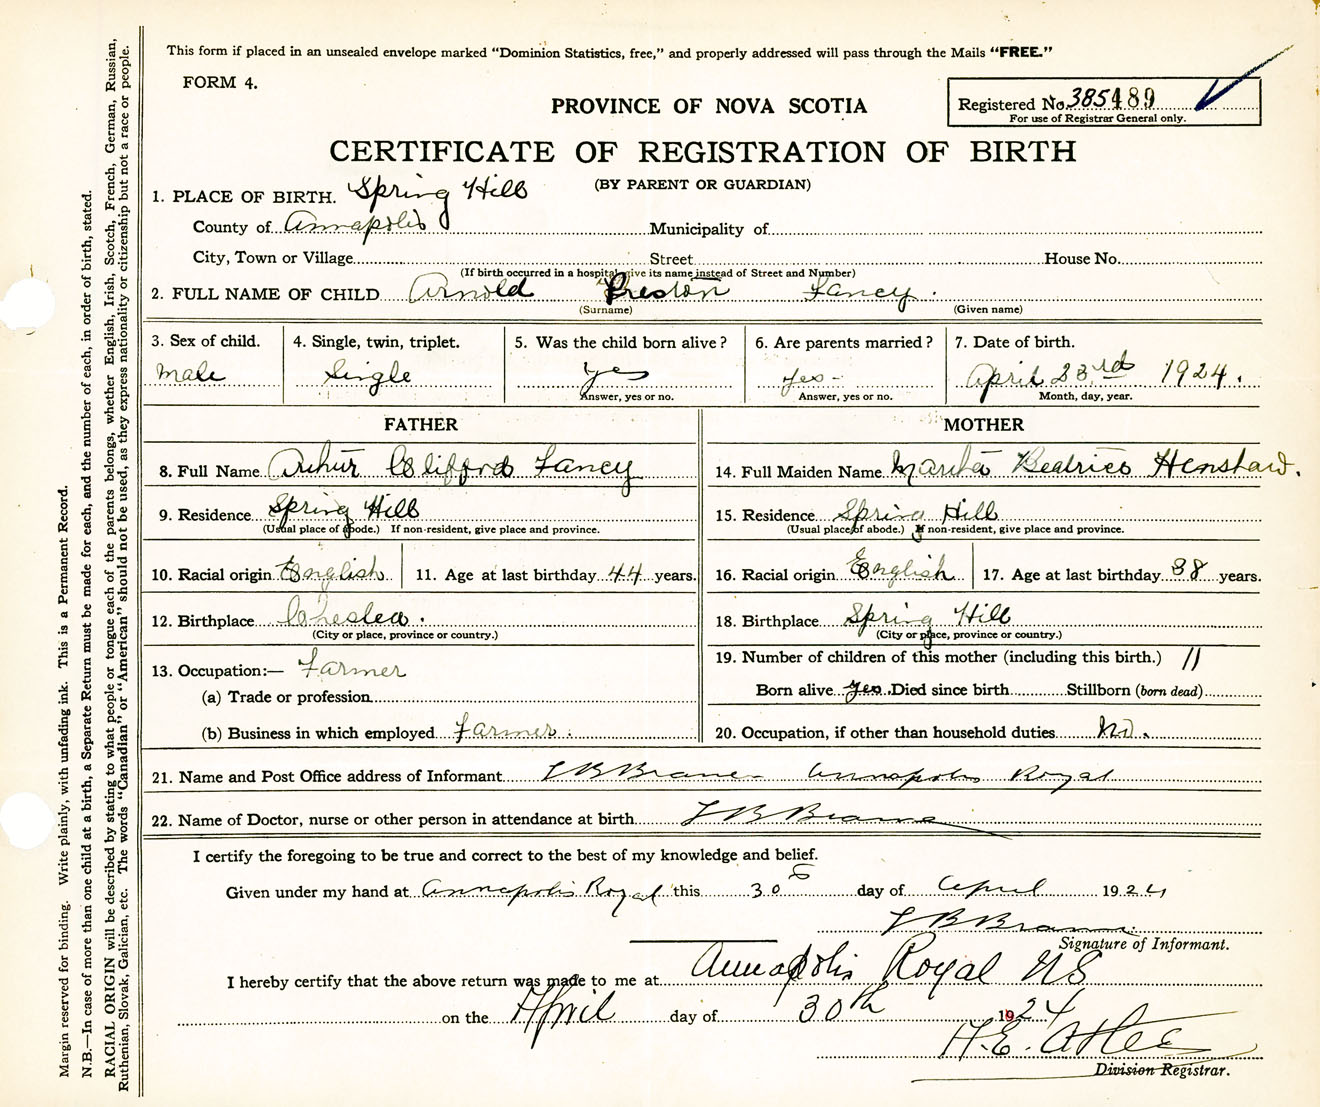 This form if placed in an unsealed envelope marked “Dominion Statistics, free,” and properly addressed will pass through the Mails “FREE.”
FORM 4.
PROVINCE OF NOVA SCOTIA
Registered No. 385489
For use of Registrar General only.
CERTIFICATE OF REGISTRATION OF BIRTH
(BY PARENT OR GUARDIAN)
1. PLACE OF BIRTH. Spring Hill
County of Annapolis Municipality of
City, Town or Village Street House No.
(If birth occurred in a hospital give its name instead of Street and Number)
2. FULL NAME OF CHILD Arnold Preston Fancy.
(Surname) (Given name)
3. Sex of child. 4. Single, twin, triplet. 5. Was the child born alive? 6. Are parents married? 7. Date of birth.
Male Single yes yes- April 23rd 1924.
Answer, yes or no. Answer, yes or no. Month, day, year.
FATHER MOTHER
8. Full Name Arthur Clifford Fancy 14. Full Maiden Name Martha Beatrice Henshaw.
9. Residence Spring Hill 15. Residence Spring Hill
(Usual place of abode.) If non-resident, give place and province. (Usual place of abode.) If non-resident, give place and province.
10. Racial origin English 11. Age at last birthday 44 years. 16. Racial origin English 17. Age at last birthday 38 years.
12. Birthplace Chelsea. 18. Birthplace Spring Hill
(City or place, province or country.) (City or place, province or country.)
13. Occupation:— Farmer 19. Number of children of this mother (including this birth.) 11
(a) Trade or profession Born alive yes Died since birth Stillborn (born dead)
(b) Business in which employed Farmer. 20. Occupation, if other than household duties No.
21. Name and Post Office address of Informant L B Braine Annapolis Royal
22. Name of Doctor, nurse or other person in attendance at birth L B Braine
I certify the foregoing to be true and correct to the best of my knowledge and belief.
Given under my hand at Annapolis Royal this 30 day of April 1924
L B Braine
Signature of Informant.
I hereby certify that the above return was made to me at Annapolis Royal NS
on the April day of 30th 1924
H.E. Atlee
Division Registrar.
Margin reserved for binding. Write plainly, with unfading ink. This is a Permanent Record.
N.B.—In case of more than one child at a birth, a Separate Return must be made for each, and the number of each, in order of birth, stated.
RACIAL ORIGIN will be described by stating to what people or tongue each of the parents belongs, whether English, Irish, Scotch, French, German, Russian,
Ruthenian, Slovak, Galician, etc. The words “Canadian” or “American” should not be used, as they express nationality or citizenship but not a race or people.